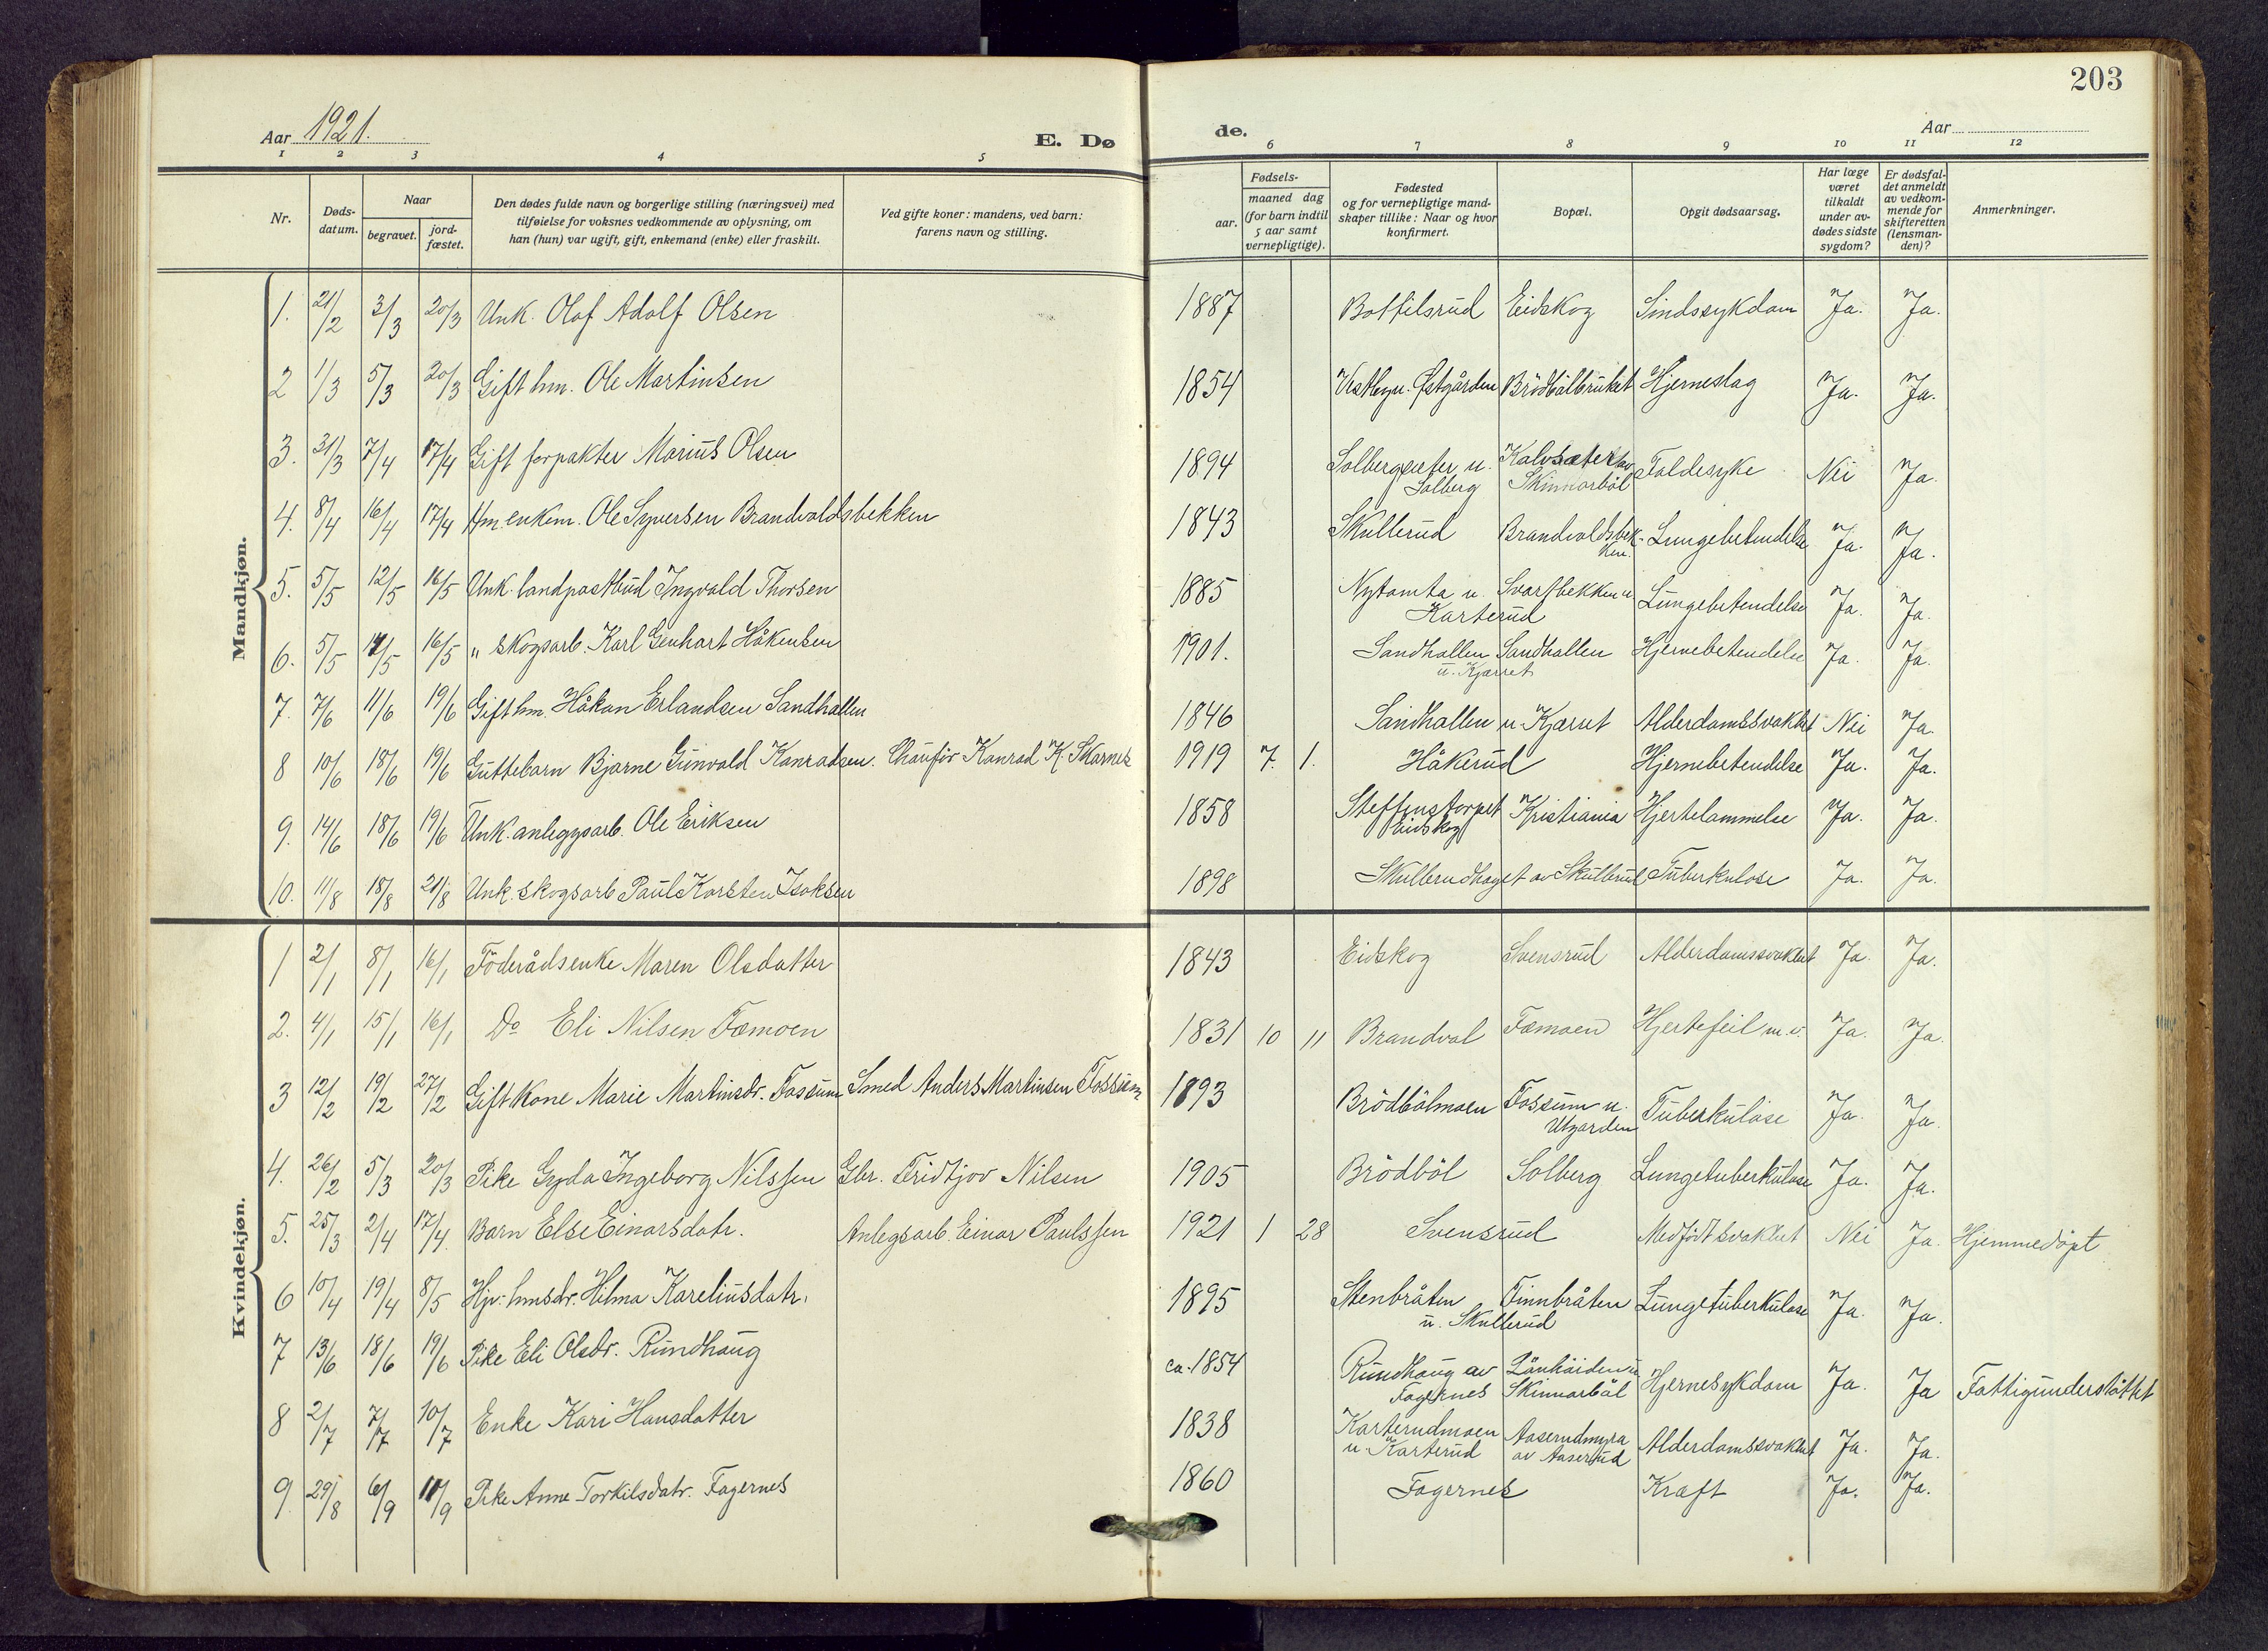 203
Aar 1921.
E. Dø
de.
Aar
1 2 3 4 5
6 7 8 9 10 11 12
Nr.
Døds-
datum.
Naar
begravet.
jord-
fæstet.
Den dødes fulde navn og borgerlige stilling (næringsvei) med
tilføielse for voksnes vedkommende av oplysning, om
han (hun) var ugift, gift, enkemand (enke) eller fraskilt.
Ved gifte koner: mandens, ved barn:
farens navn og stilling.
Fødsels-
aar.
maaned dag
(for barn indtil
5 aar samt
vernepligtige).
Fødested
og for vernepligtige mand-
skaper tillike: Naar og hvor
konfirmert.
Bopæl.
Opgit dødsaarsag.
Har læge
været
tilkaldt
under av-
dødes sidste
sygdom?
Er dødsfal-
det anmeldt
av vedkom-
mende for
skifteretten
(lensman-
den)?
Anmerkninger.
Mandkjøn.
1. 21/2 3/3 20/3 Unk. Olaf Adolf Olsen 1887 Bottilsrud Eidskog Sindssykdom Ja. Ja.
2 1/3 5/3 20/3 Gift hm. Ole Martinsen 1854 Vestby u. Østgården Brödbölbruket Hjerneslag Ja. Ja.
3. 31/3 7/4 17/4 Gift forpakter Marius Olsen 1894 Solbergsæter u. Solberg Kalvsæter av Skinnarböl Faldesyke Nei Ja.
4. 8/4 16/4 17/4 Hm. enkem. Ole Syversen Brandvoldsbekken 1843 Skullerud Brandvoldsbekken. Lungebetendelse Ja. Ja.
5. 5/5 12/5 16/5 Unk. landpostbud Ingvald Thorsen 1885 Nytomta u. Svartbekken u Karterud Lungebetendelse Ja. Ja.
6. 5/5 14/5 16/5 „ skogsarb. Karl Genhart Håkensen 1901. Sandhallen Sandhallen u. Kjærret Hjernebetendelse Ja. Ja.
7. 7/6 11/6 19/6 Gift hm. Håkan Erlandsen Sandhallen 1846 Sandhallen u. Kjærret Alderdomssvakhet Nei Ja.
8 10/6 18/6 19/6 Guttebarn Bjarne Gunvald Konradsen. Chaufør Konrad K. Skarnes 1919 7. 1. Håkerud Hjernebetendelse Ja. Ja.
9. 14/6 18/6 19/6 Unk. anlegsarb. Ole Eriksen 1858 Steffenstorpet Eidskog Kristiania Hjertelammelse Ja. Ja.
10. 11/8 18/8 21/8 Unk. skogsarb Paul Karsten Isaksen 1898 Skullerudhaget av Skullerud Tuberkulose Ja. Ja.
Kvindekjøn.
1 2/1 8/1 16/1 Föderådsenke Maren Olsdatter 1843 Eidskog Svensrud Alderdomssvakhet Ja. Ja.
2. 4/1 15/1 16/1 Do Eli Nilsen Tæmoen 1831 10 11 Brandval Tæmoen Hjertefeil m.v. Ja. Ja.
3 12/2 19/2 27/2 Gift Kone Marie Martinsdr. Fossum Smed Anders Martinsen Fossum 1893 Brödbölmoen Fossum u. Utgarden Tuberkulose Ja. Ja.
4. 26/2 5/3 20/3 Pike Gyda Ingeborg Nilssen Gbr. Fridtjov Nilsen 1905 Brödböl Solberg Lungetuberkulose Ja. Ja.
5. 25/3 2/4 17/4. Barn Else Einarsdatr. Anlegsarb. Einar Paulssen 1921 1 28 Svensrud Medfødt svakhet Nei Ja. Hjemmedöpt
6 10/4 19/4 8/5 Hjv. hmsdr. Hilma Kareliusdatr. 1895 Stenbråten Finnbråten u. Skullerud Lungetuberkulose Ja. Ja.
7 13/6 18/6 19/6 Pike Eli Olsdr. Rundhaug ca. 1854 Rundhaug av Fagernes Lönhöiden u Skinnarböl Hjernesykdom Ja. Ja Fattigunderstöttet
8 2/7 7/7 10/7 Enke Kari Hansdatter 1838 Karterudmoen u. Karterud Aaserudmyra av Aaserud Alderdomssvakhet Ja. Ja.
9. 29/8 6/9 11/9 Pike Anne Torkilsdatr. Fagernes 1860 Fagernes Kræft Ja. Ja.